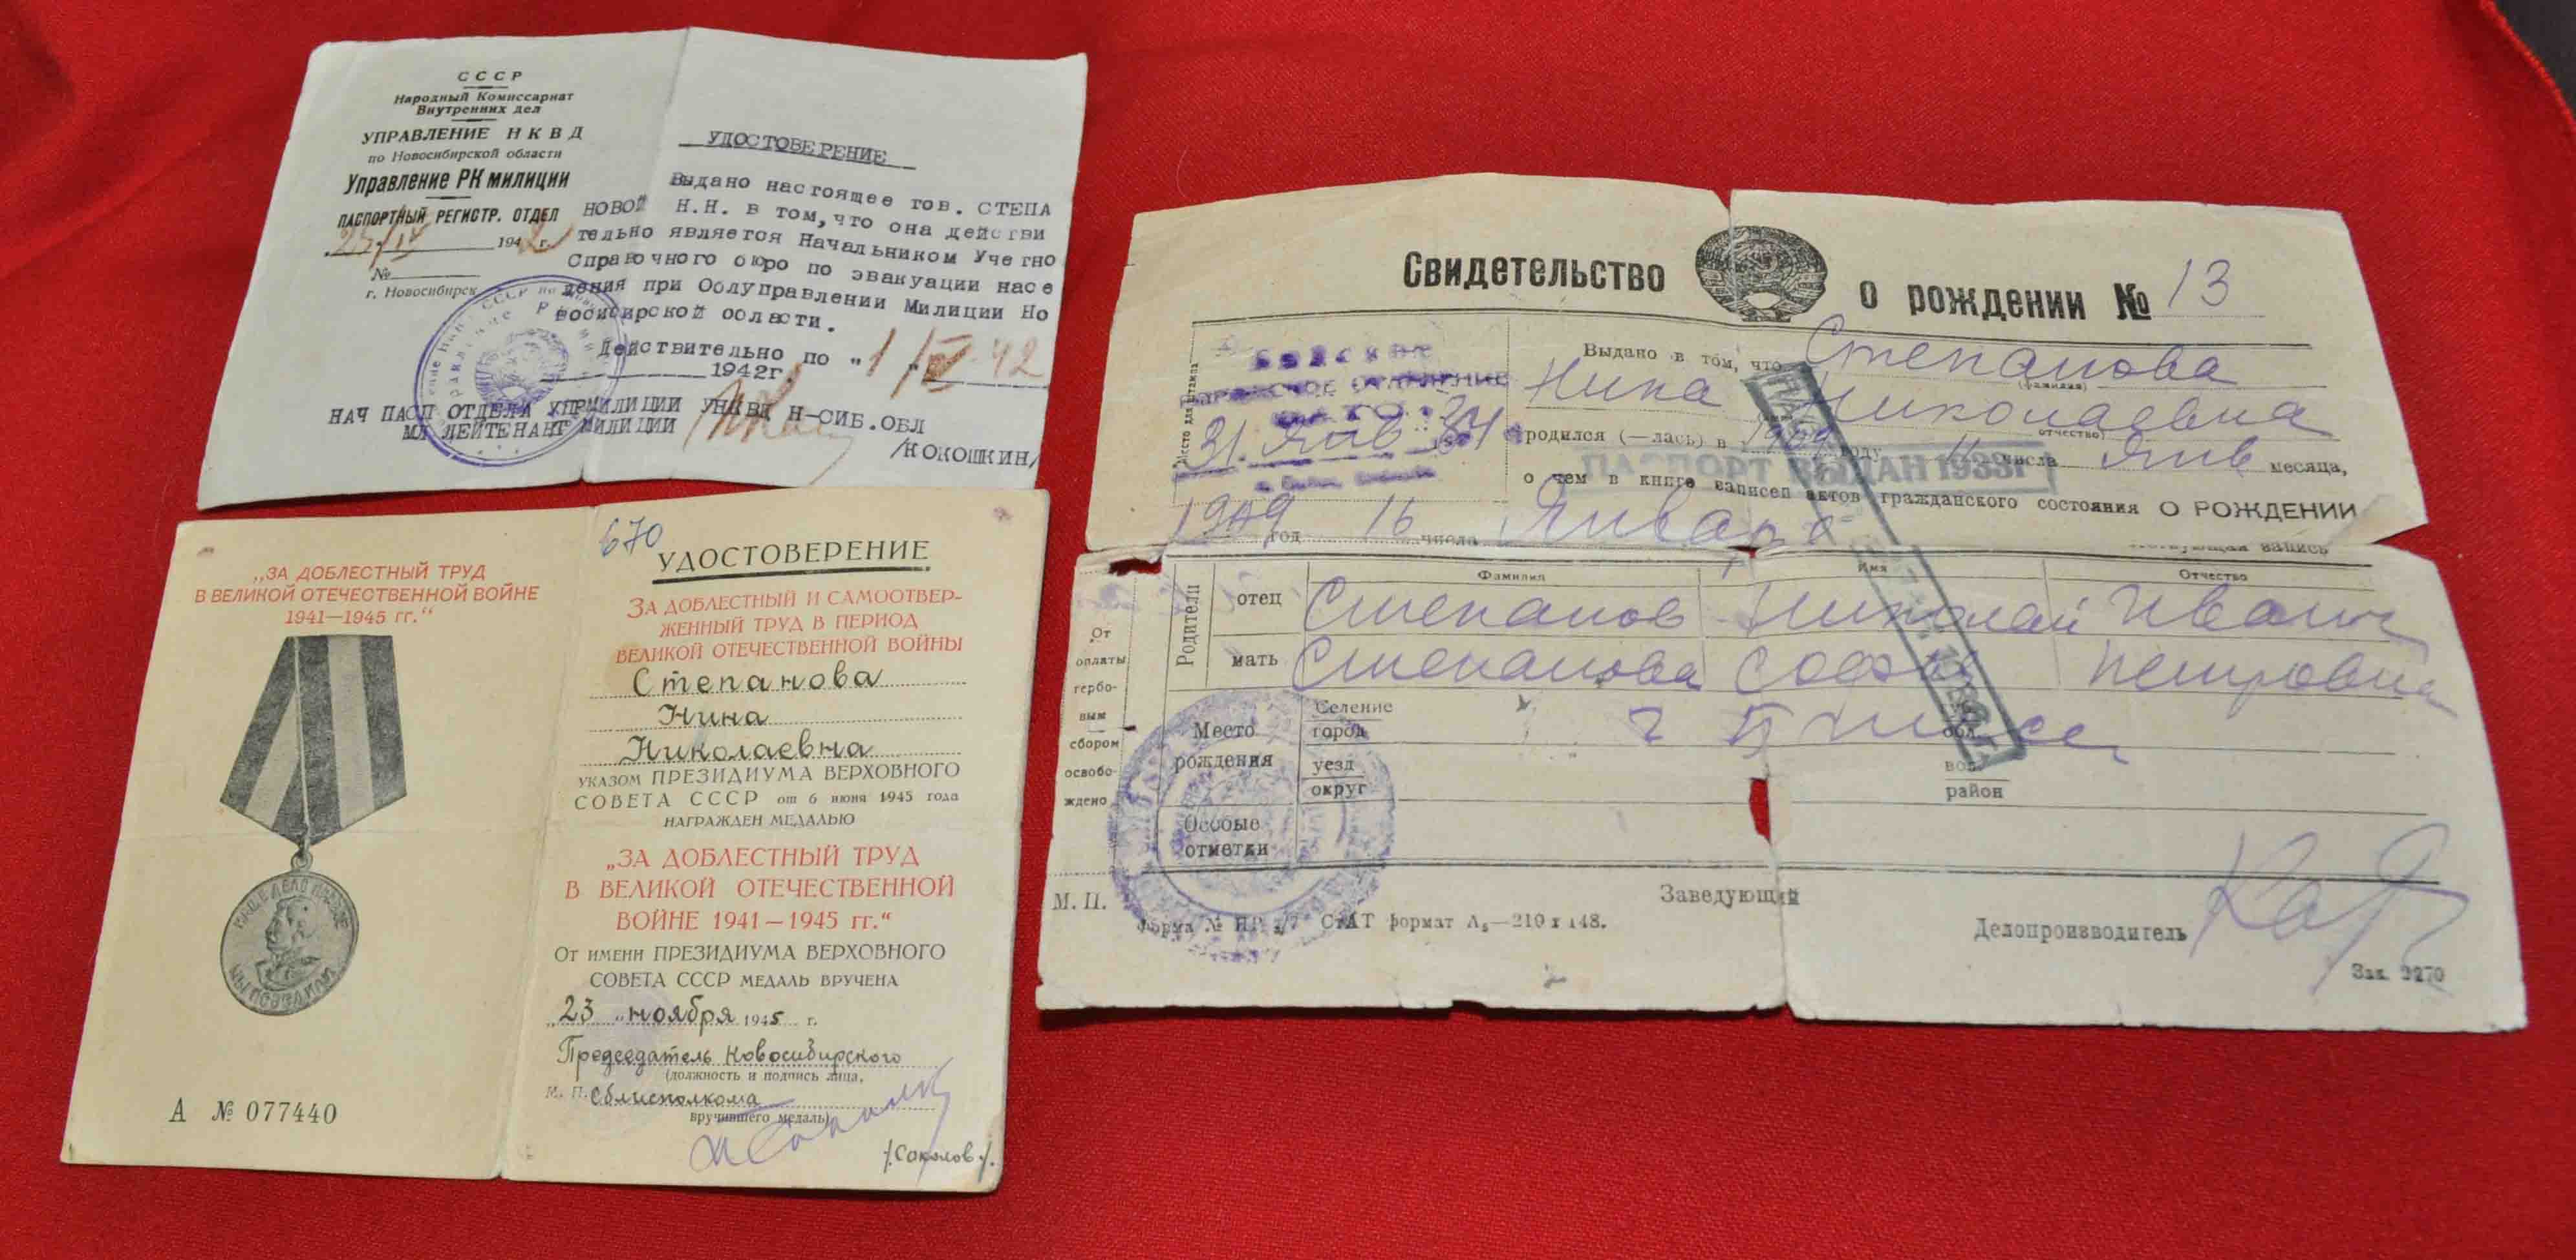 СССР
Народный Комиссариат
Внутренних дел
УПРАВЛЕНИЕ НКВД
по Новосибирской области
Управление РК милиции
ПАСПОРТНЫЙ РЕГИСТР. ОТДЕЛ
194 г.
№
г. Новосибирск
УДОСТОВЕРЕНИЕ
Выдано настоящее тов. СТЕПА
НОВОЙ Н.Н. в том, что она действи
тельно является Начальником Учетно
Справочного бюро по эвакуации насе
ления при Облуправлении Милиции Но
восибирской области.
Действительно по "1/IV-42
1942г.
НАЧ ПАСП ОТДЕЛА УПРМИЛИЦИИ УНКВД Н-СИБ.ОБЛ
МЛ ЛЕЙТЕНАНТ МИЛИЦИИ
/КОКОШКИН/
„ЗА ДОБЛЕСТНЫЙ ТРУД
В ВЕЛИКОЙ ОТЕЧЕСТВЕННОЙ ВОЙНЕ
1941—1945 гг.“
НАШЕ ДЕЛО ПРАВОЕ
МЫ ПОБЕДИЛИ
А № 077440
670
УДОСТОВЕРЕНИЕ
ЗА ДОБЛЕСТНЫЙ И САМООТВЕР-
ЖЕННЫЙ ТРУД В ПЕРИОД
ВЕЛИКОЙ ОТЕЧЕСТВЕННОЙ ВОЙНЫ
Степанова
Нина
Николаевна
УКАЗОМ ПРЕЗИДИУМА ВЕРХОВНОГО
СОВЕТА СССР от 6 июня 1945 года
НАГРАЖДЕН МЕДАЛЬЮ
„ЗА ДОБЛЕСТНЫЙ ТРУД
В ВЕЛИКОЙ ОТЕЧЕСТВЕННОЙ
ВОЙНЕ 1941—1945 гг.“
ОТ ИМЕНИ ПРЕЗИДИУМА ВЕРХОВНОГО
СОВЕТА СССР МЕДАЛЬ ВРУЧЕНА
„23 „ ноября 1945 г.
Председатель Новосибирского
(должность и подпись лица,
М. П. Облисполкома
вручившего медаль)
/Соколов/.
Свидетельство о рождении № 13
Место для штампа
31. Янв 34
Выдано в том, что Степанова
(фамилия)
Нина Николаевна
отчество)
родился (—лась) в 1909 году 11 числа Янв месяца,
ПАСПОРТ ВЫДАН 1933г
о чем в книге записей актов гражданского состояния О РОЖДЕНИИ
1909 год 16 числа Января
запись
Фамилия Имя Отчество
От
оплаты
гербо-
вым
сбором
освобо-
ждено
Родители
отец Степанов Николай Иванич
мать Степанова Софья Петровна
Место
рождения
Селение
город
уезд
округ
обл.
вол.
район
Особые
отметки
М. П.
Заведующий
Делопроизводитель
формат А₅—210 х 148.
Зак. 3270